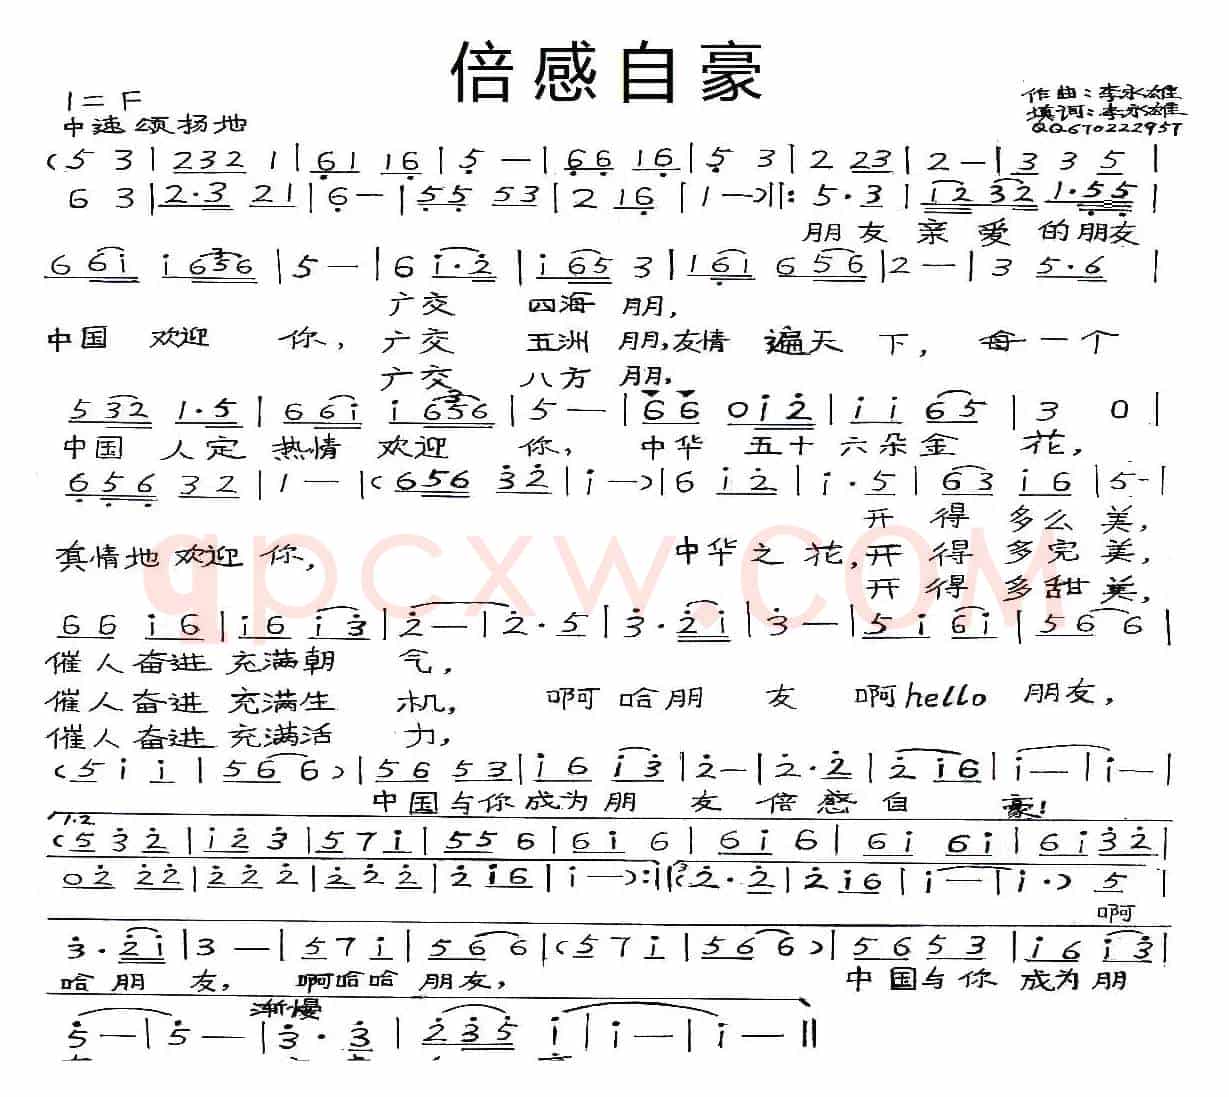 倍感自豪
1=F
中速 颂扬地
作曲:李永雄
填词:李永雄
QQ670222957
(5 3 | 232 1 | 61 16 | 5 — | 66 16 | 5 3 | 2 23 | 2 — | 3 3 5 |
6 3 | 2·3 21 | 6 — | 55 53 | 2 16 | 1 —) ||: 5·3 | i2 32 1·55 |
朋友 亲爱的朋友
6 6i i 656 | 5 — | 6 i·2 | i 65 3 | 1 6i 6 56 | 2 — | 3 5·6 |
广交 四海 朋,
中国 欢迎 你, 广交 五洲 朋,友情 遍天 下, 每一个
广交 八方 朋,
5 32 1·5 | 6 6i i 656 | 5 — | 66 0i2 | i i 65 | 3 0 |
中国 人定 热情 欢迎 你, 中华 五十六朵金 花,
656 32 | 1 — | (656 32 | i —) | 6 i2 | i·5 | 63 i6 | 5 — |
开 得 多么 美,
真情地 欢迎 你, 中华之花,开 得 多完 美,
开 得 多甜 美,
66 i6 | i6 i3 | 2 — | 2·5 | 3·2i | 3 — | 5i 6i | 56 6 |
催人奋进 充满朝 气,
催人奋进 充满生 机, 啊哈朋 友 啊hello 朋友,
催人奋进 充满活 力,
(5i i | 56 6) | 56 53 | i6 i3 | 2 — | 2·2 | 2 i6 | i — | i — |
中国与你 成为 朋 友 倍感 自 豪!
1.2
(532 | i23 | 57i | 556 | 6i6 | 6i6 | 6i 6i | 6i32 |
02 22 | 222 | 222 | 2i6 | i —) :|| 3 2·2 | 2i6 | i — | i·) 5 |
啊
3·2i | 3 — | 57i | 56 6 | (57i | 56 6) | 5653 | i6 i3 |
哈朋 友, 啊哈哈 朋友, 中国与你 成为朋
渐慢
5 — | 5 — | 3·3 | 235 | i | i — | i — ||